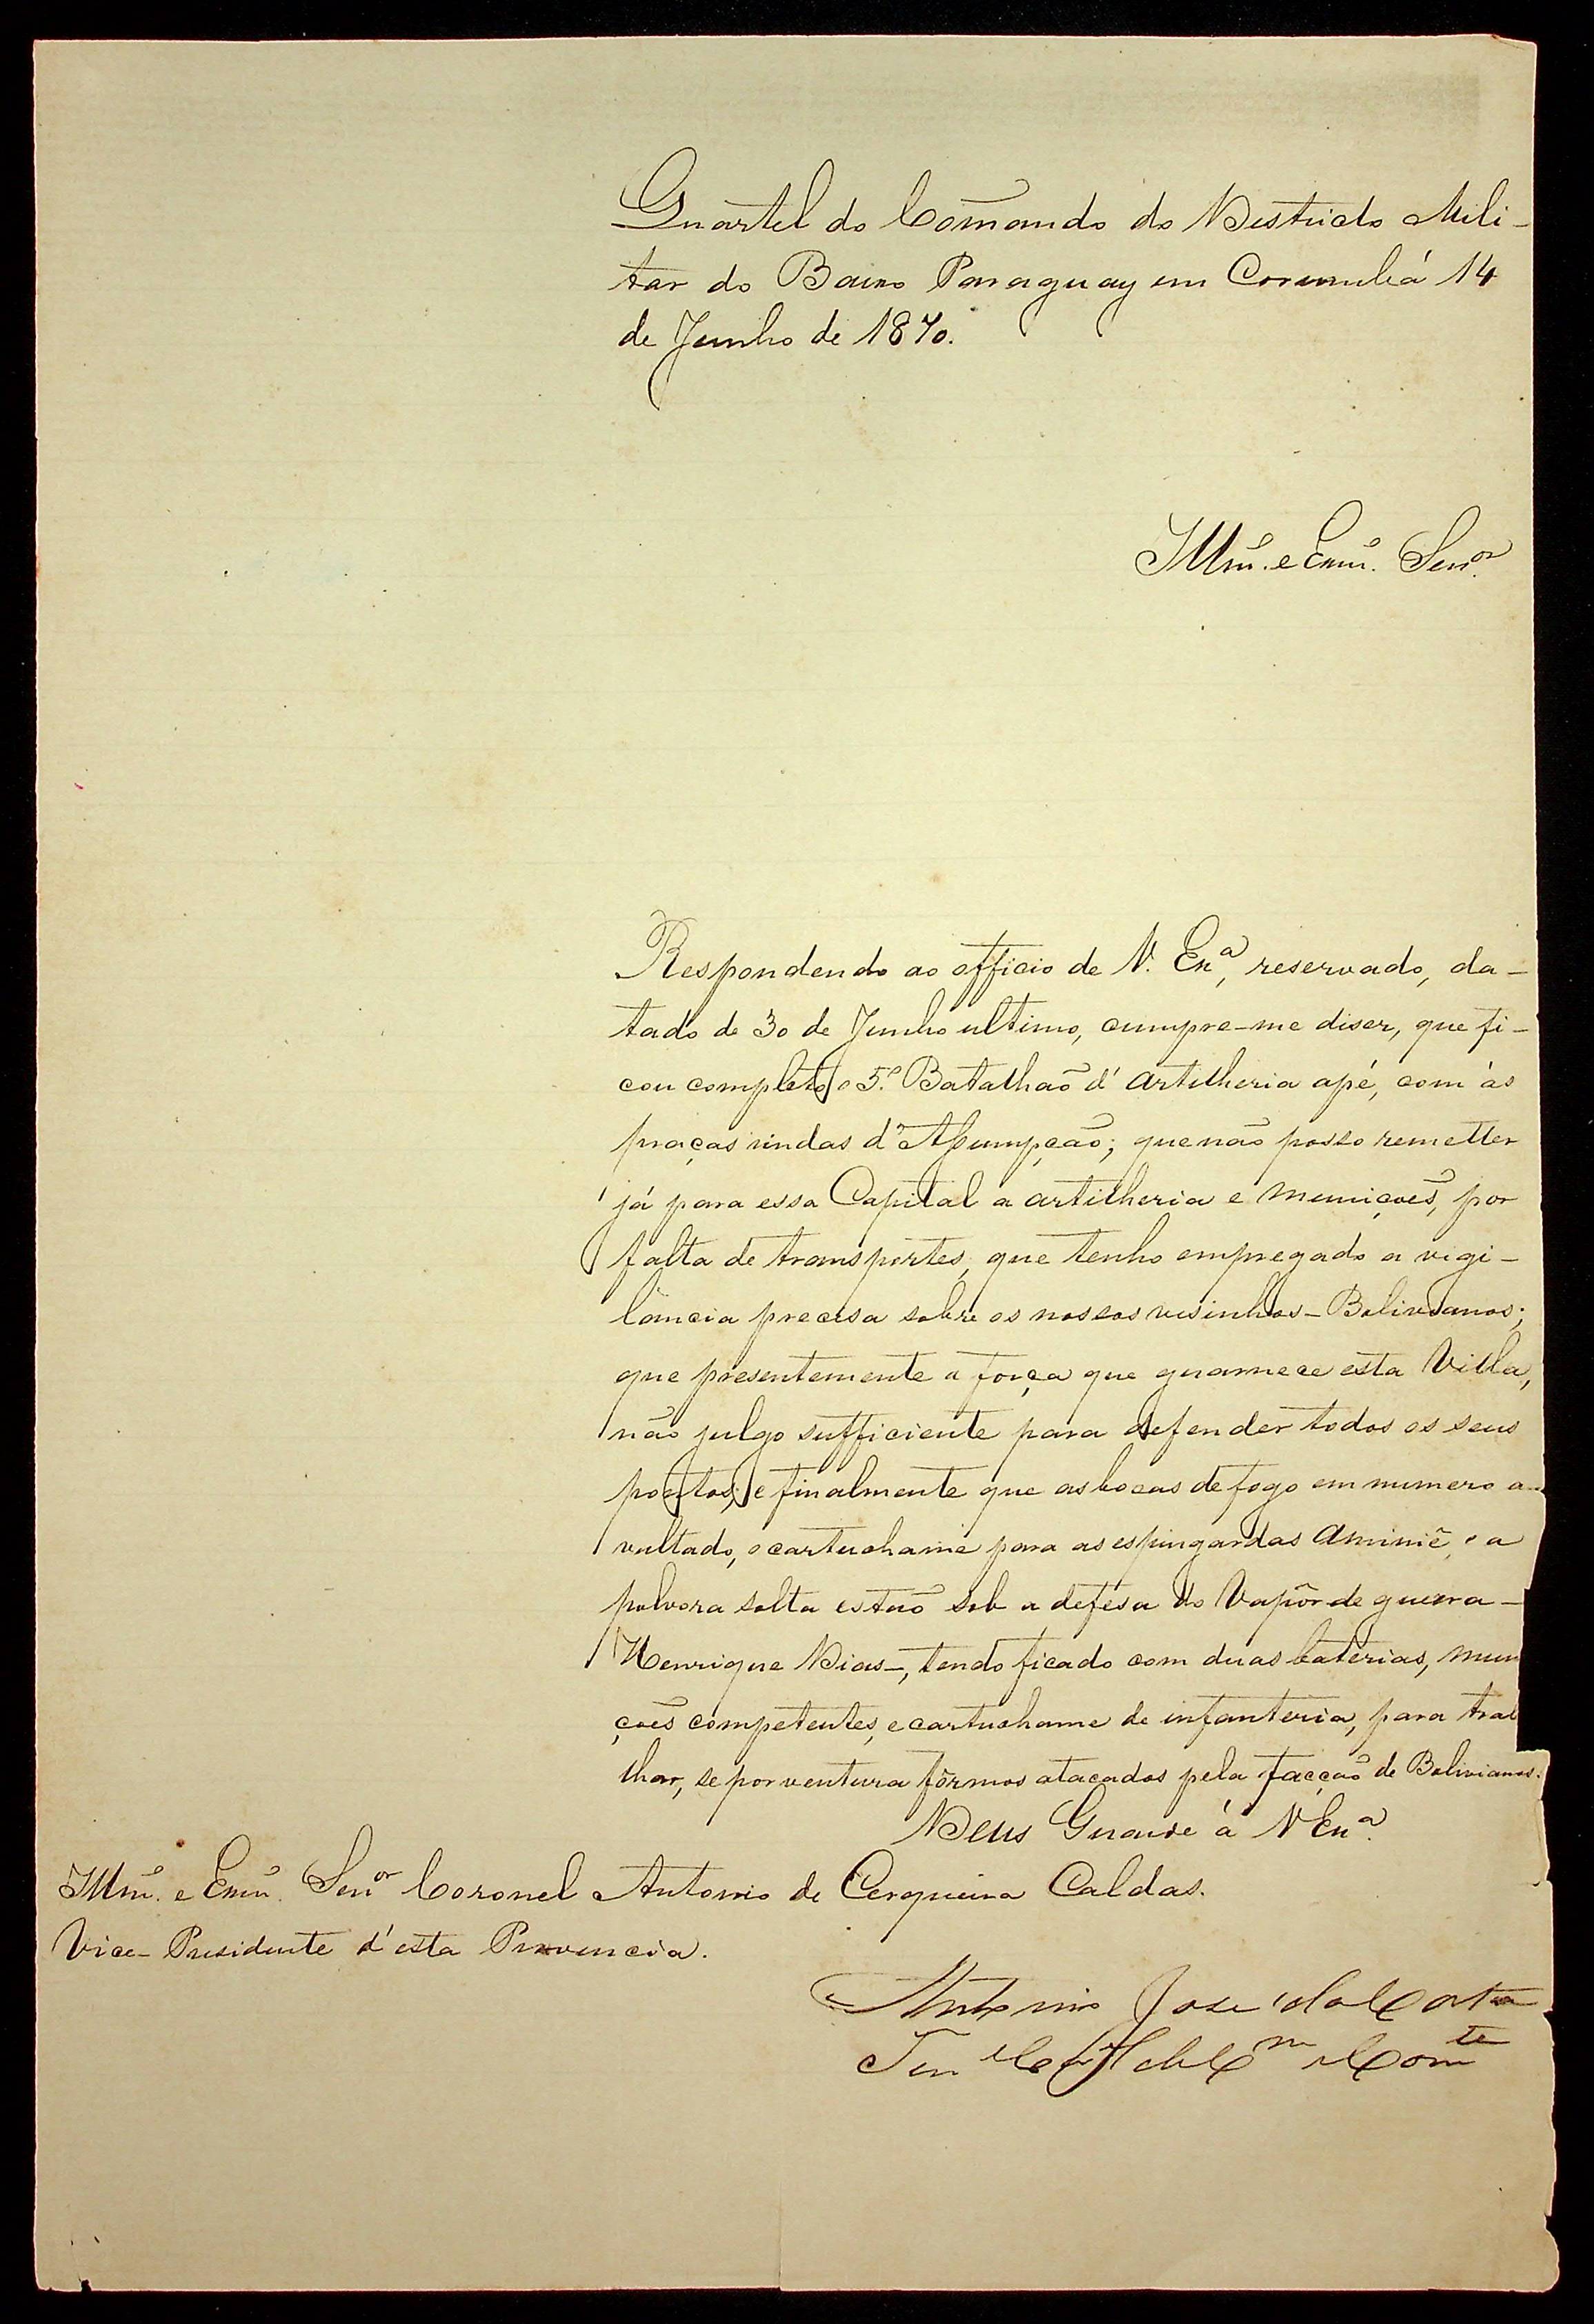 Quartel do Com̃ando do Districto Mili-
tar do Baixo Paraguay em Corumbá 14
de Junho de 1870.
Illm̃o. e Exm̃o. Senor.
Respondendo ao officio de V. Exa, reservado, da-
tado de 30 de Junho ultimo, cumpre-me diser, que fi-
cou completo o 5.º Batalhaõ d' artilheria apé, com ás
praças vindas d' Assumpçaõ; que naõ posso remetter
já para essa Capital a artilheria e muniçoẽs, por
falta de transportes, que tenho empregado a vigi-
lancia precisa sobre os nossos visinhos - Bolivianos;
que presentemente a força que guarnece esta Villa,
não julgo sufficiente para defender todos os seus
pontos; e finalmente que as bocas de fogo em numero a-
vultado, o cartuchame para as espingardas aminiê, e a
polvora solta estaõ sob a defesa do Vapôr de guerra -
Henrique Dias -, tendo ficado com duas baterias, mun
çoẽs competentes, e cartuchame de infanteria, para tra
lhar, se por ventura fôrmos atacados pela facçaõ de Bolivianos.
Deus Guarde á V Exa.
Illm̃o. e Exm̃o. Senor Coronel Antonio de Cerqueira Caldas.
Vice-Presidente d'esta Provincia.
Antonio José da Costa
Ten Comte